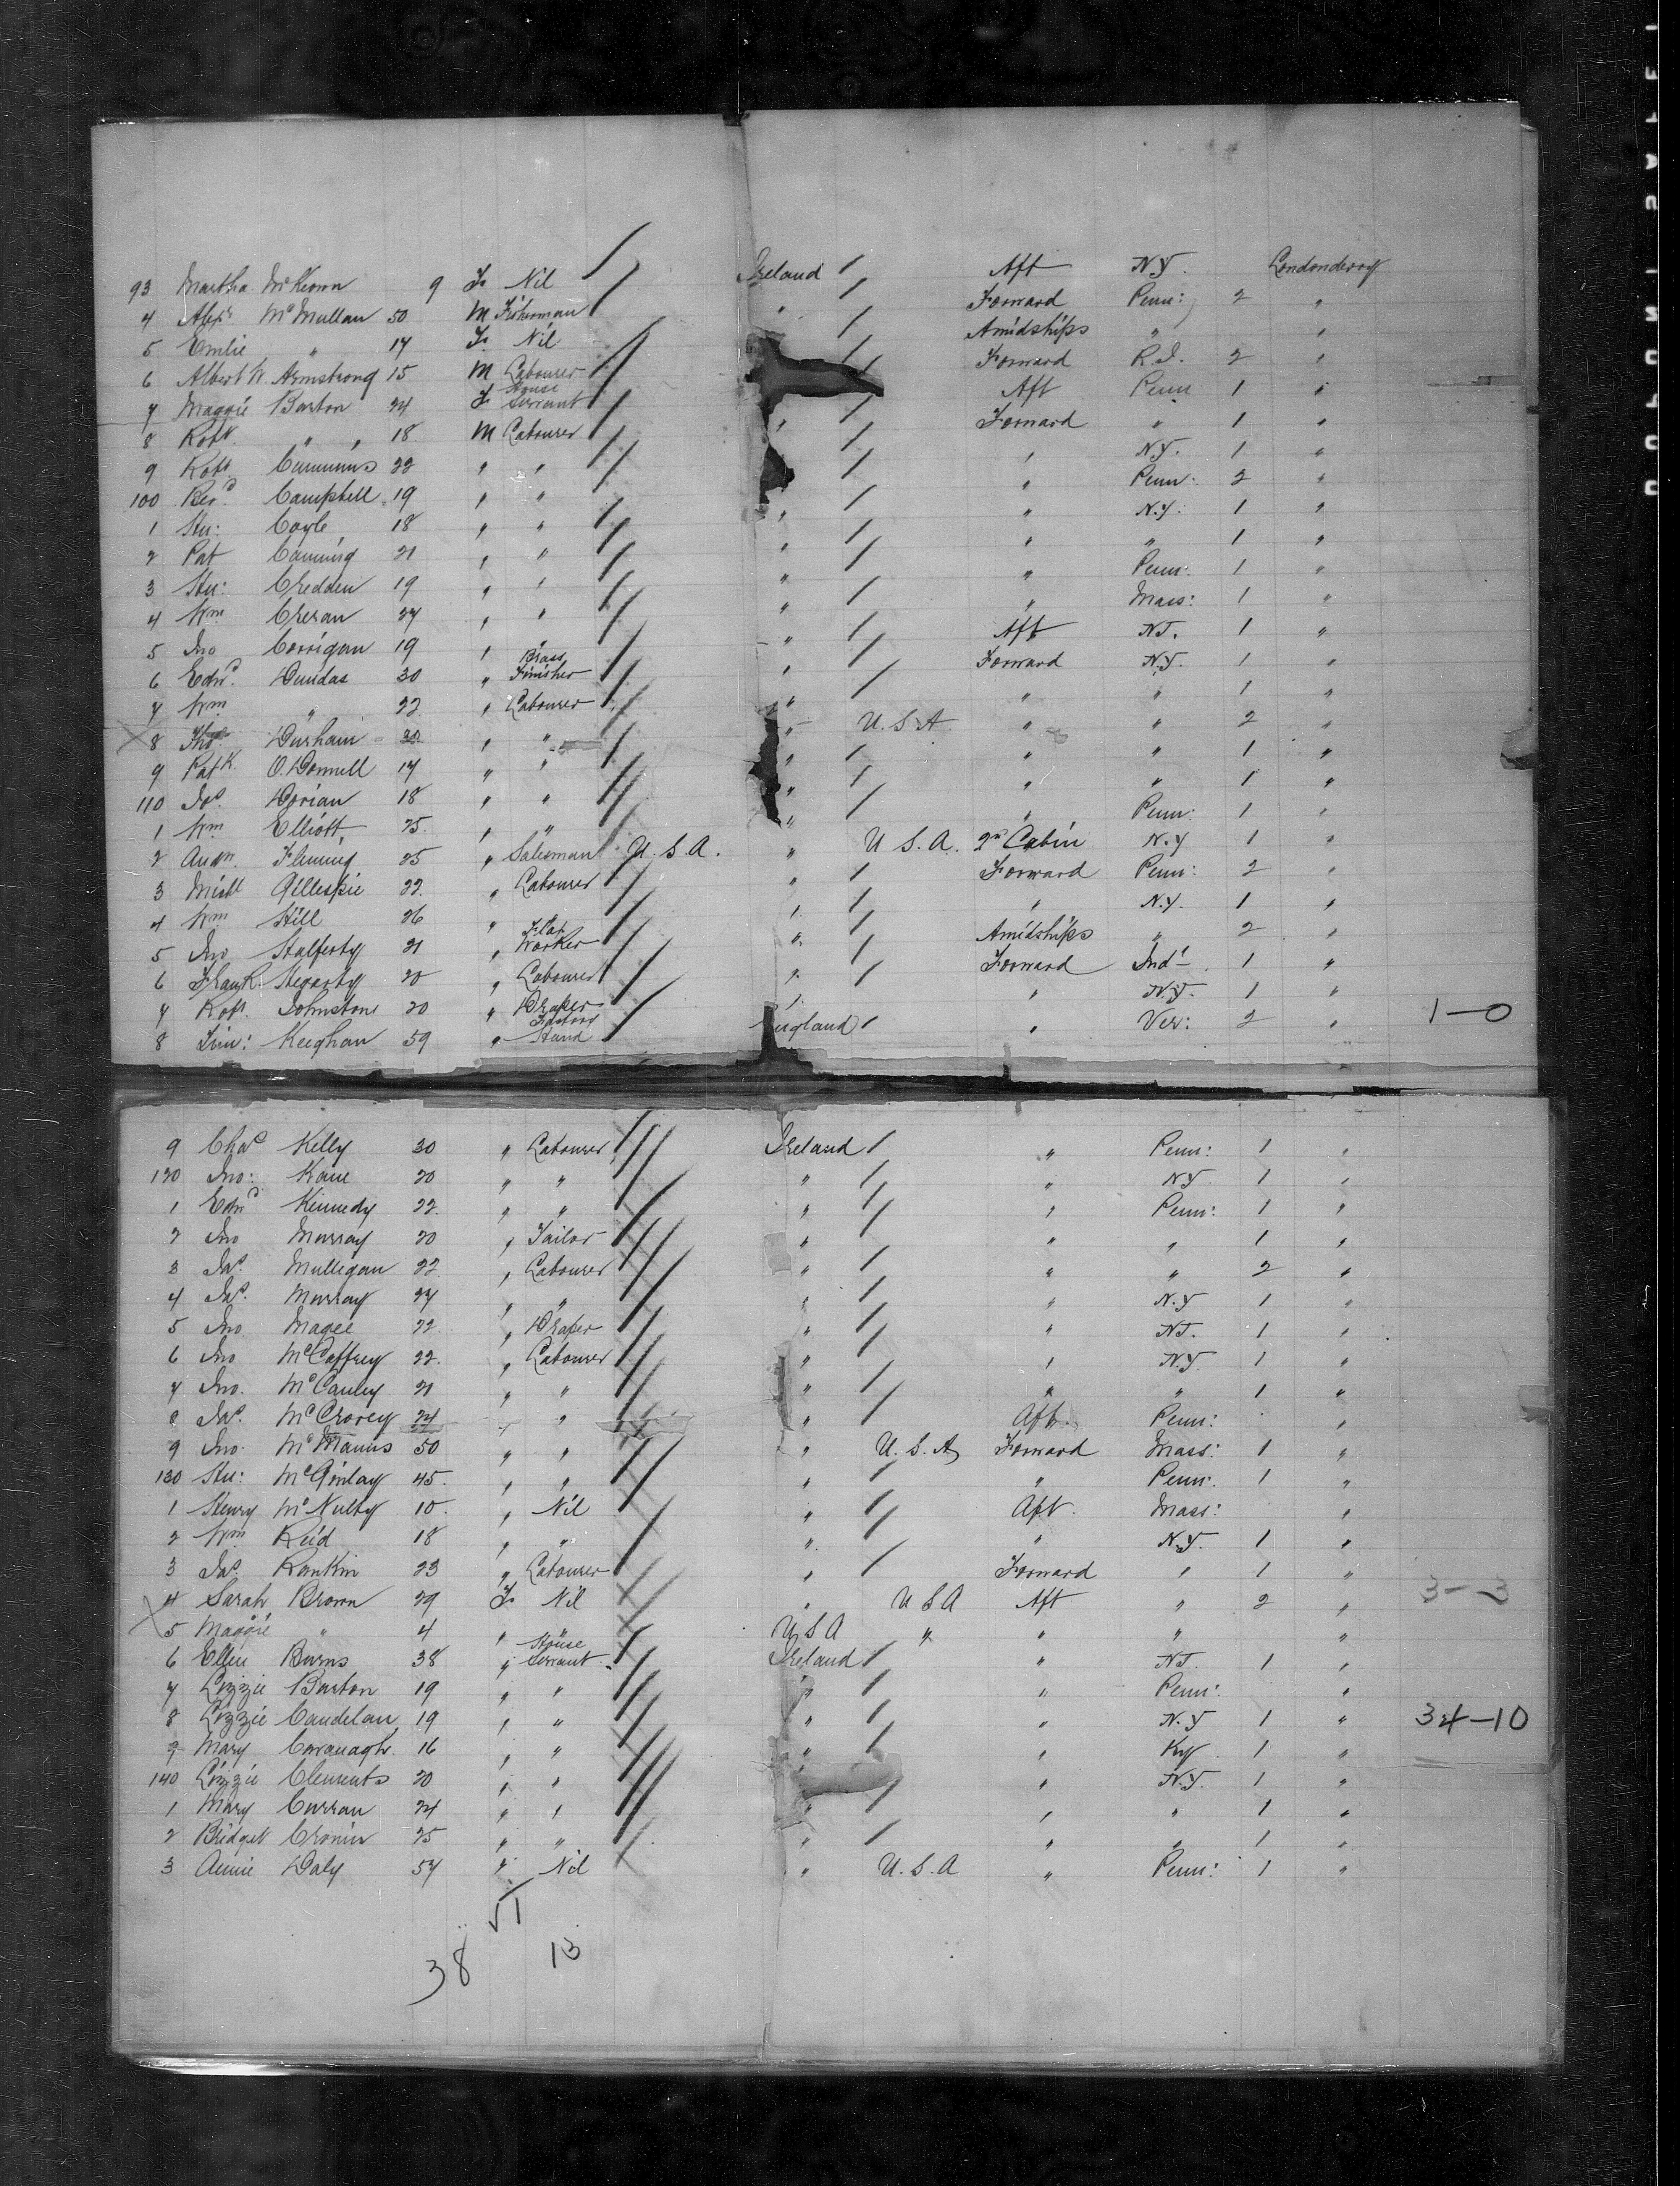 93 Martha McKeown 9 F Nil Ireland / Aft N.Y. Londonderry
4 Alexr. McMullan 50 M Fisherman " / Forward Penn: 2 "
5 Emlie " 17 F. Nil / Amidships " "
6 Albert W. Armstrong 15 M Labourer / Forward R.I. 2 "
7 Maggie Barton 24 F House Servant / Aft Penn 1 "
8 Robt. " 18 M Labourer " / Forward " 1 "
9 Robt. Cummins 22 " " / " N.Y. 1 "
100 Berd. Campbell 19 " " / " Penn: 2 "
1 Hu: Coyle 18 " " " / " N.Y. 1 "
2 Pat Canning 21 " " " / " " 1 "
3 Hu: Credden 19 " " " / " Penn: 1 "
4 Wm Creran 27 " " " / " Mass: 1 "
5 Jno Corrigan 19 " " " / Aft N.J. 1 "
6 Edwd. Dundas 30 " Brass Finisher " / Forward N.Y. 1 "
7 Wm " 22 " Labourer " / " " 1 "
8 Durham 30 " " " U.S.A " " 2 "
9 Patk. O.Donnell 17 " " " / " " 1 "
110 Jas. Dorian 18 " " " / " " 1 "
1 Wm Elliott 25 " " " / " Penn: 1 "
2 Andw. Fleming 25 " Salesman U.S.A. " U.S.A. 2nd Cabin N.Y 1 "
3 Michl Gillespie 22 " Labourer " / Forward Penn: 2 "
4 Wm Hill 26 " " " / " N.Y. 1 "
5 Jno Halferty 21 " Flax Worker " / Amidships " 2 "
6 Frank Hegarty 20 " Labourer " / Forward Ind. 1 "
7 Robt. Johnstone 20 " Draper " / " N.Y. 1 "
8 Jim: Keeghan 59 " Factory Hand England / " Ver: 2 " 1-0
9 Chas Kelly 30 " Labourer Ireland / " Penn: 1 "
120 Jno: Kane 20 " " " / " N.Y 1 "
1 Edwd Kennedy 22 " " " / " Penn: 1 "
2 Jno Murray 20 " Tailor " / " " 1 "
3 Jas. Mulligan 22 " Labourer " / " " 2 "
4 Jas. Murray 27 " " " / " N.Y 1 "
5 Jno Magee 22 " Draper " / " N.J. 1 "
6 Jno McCaffrey 22 " Labourer " / " N.Y. 1 "
7 Jno. McCauley 21 " " " / " " 1 "
8 Jas. McCrorey 24 " " " / Aft Penn: "
9 Jno. McManus 50 " " " U.S.A Forward Mass: 1 "
130 Hu: McGinlay 45 " " " / " Penn: 1 "
1 Henry McNulty 10 " Nil " / Aft. Mass: "
2 Wm Reid 18 " " " / " N.Y. 1 "
3 Jas. Rankin 23 " Labourer " / Forward " 1 "
4 Sarah Brown 29 F Nil " U S A Aft " 2 " 3-3
5 Maggie " 4 " " U S A " " " "
6 Ellen Burns 38 " House Servant Ireland / " N.J. 1 "
7 Lizzie Barton 19 " " " / " Penn: "
8 Lizzie Caudelan 19 " " " / " N.Y 1 " 34-10
9 Mary Cavanagh 16 " " " / " Ky 1 "
140 Lizzie Clements 20 " " " / " N.Y. 1 "
1 Mary Curran 24 " " " / " " 1 "
2 Bridget Cronin 25 " " " / " " 1 "
3 Annie Daly 57 " Nil " U.S.A " Penn: 1 "
38 13